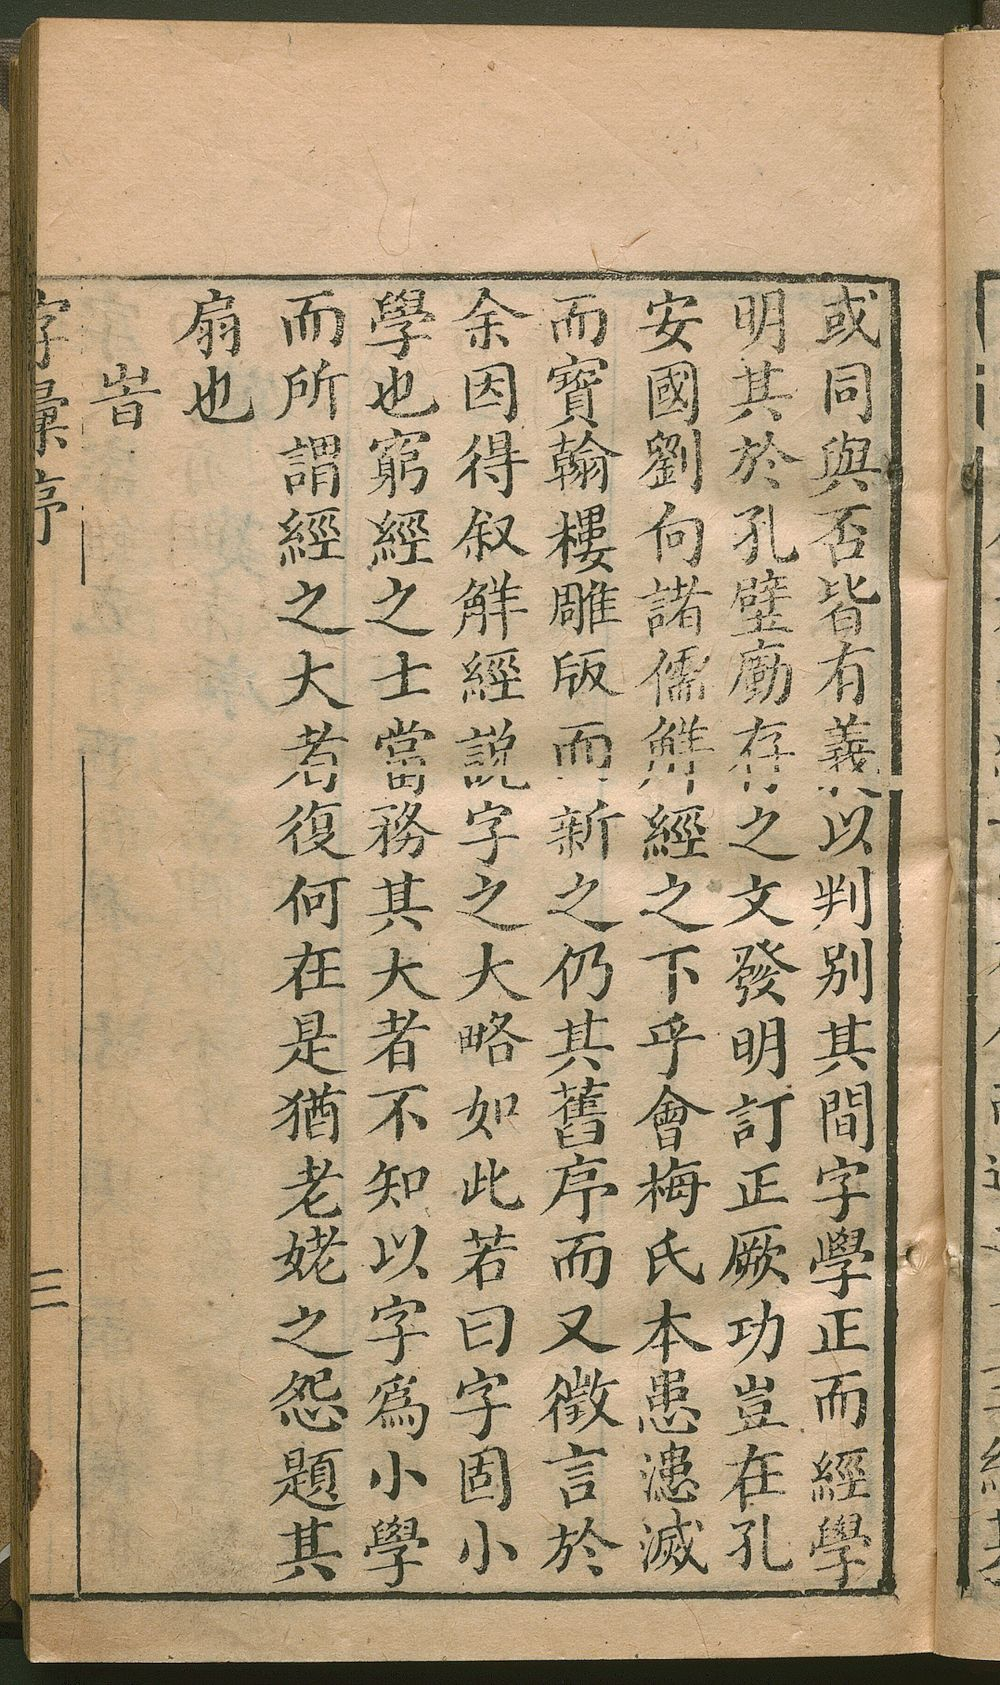 或同與否皆有義以判別其間字學正而經學
明其於孔壁廟存之文發明訂正厥功豈在孔
安國劉向諸儒觧經之下乎會梅氏本患漶滅
而寶翰樓雕版而新之仍其舊序而又徵言於
余因得叙觧經説字之大略如此若曰字固小
學也窮經之士當務其大者不知以字為小學
而所謂經之大者復何在是猶老姥之怨題其
扇也
旹
字彙序
三